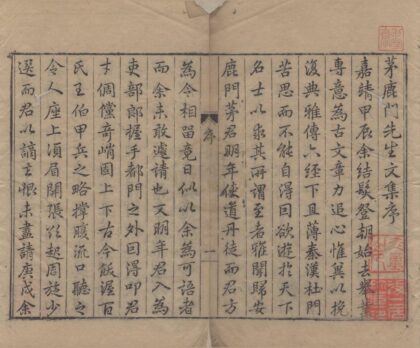 茅鹿門先生文集序
嘉靖甲辰余結髮登朝始去舉業
專意為古文章力追心惟冀以挽
復典雅傳六經下且薄秦漢杜門
苦思而不能自得因欲遊於天下
名士以求其所謂至者雅聞歸安
鹿門茅君明年使道丹徒而君方
序
一
為令相留竟日似以余為可語者
而余未敢遽請也又明年君入為
吏部郎握手都門之外因得叩君
古今上下
氏王伯甲兵之略撐腹流口聽之
令人座上須眉開張欲起周旋少
選而君以謫去恨未盡請庚戌余